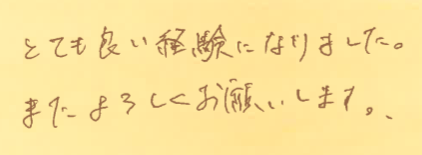 とても良い経験になりました。
またよろしくお願いします。